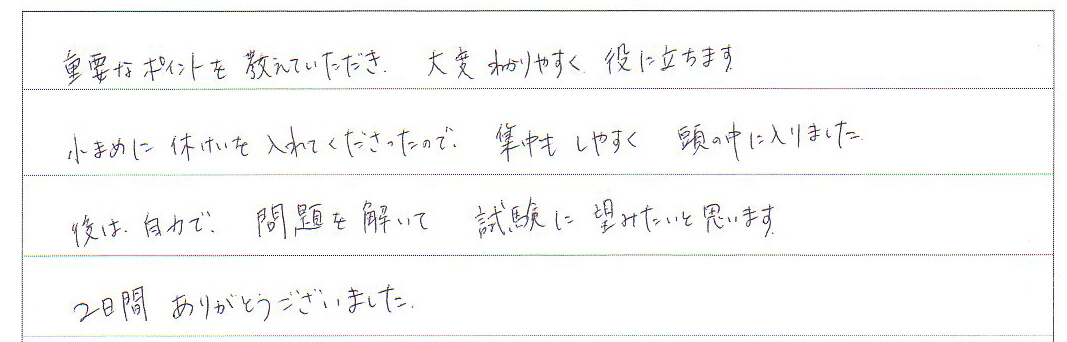 重要なポイントを教えていただき、大変わかりやすく、役に立ちます。
小まめに休けいを入れてくださったので、集中もしやすく頭の中に入りました。
後は、自力で、問題を解いて試験に望みたいと思います。
2日間ありがとうございました。